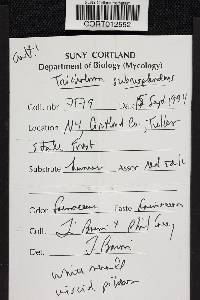 CORT012552
SUNY CORTLAND
Department of Biology (Mycology)
Tricholoma subresplendens
Coll. nbr 7579 Date 15 Sept 1994
Location NY, Cortland Co.,
State Forest
Substrate humus Assoc red oak
Odor farinaceous Taste farinaceous
Coll. T. J. Baroni & Phil
Det. T. J. Baroni
viscid pileus